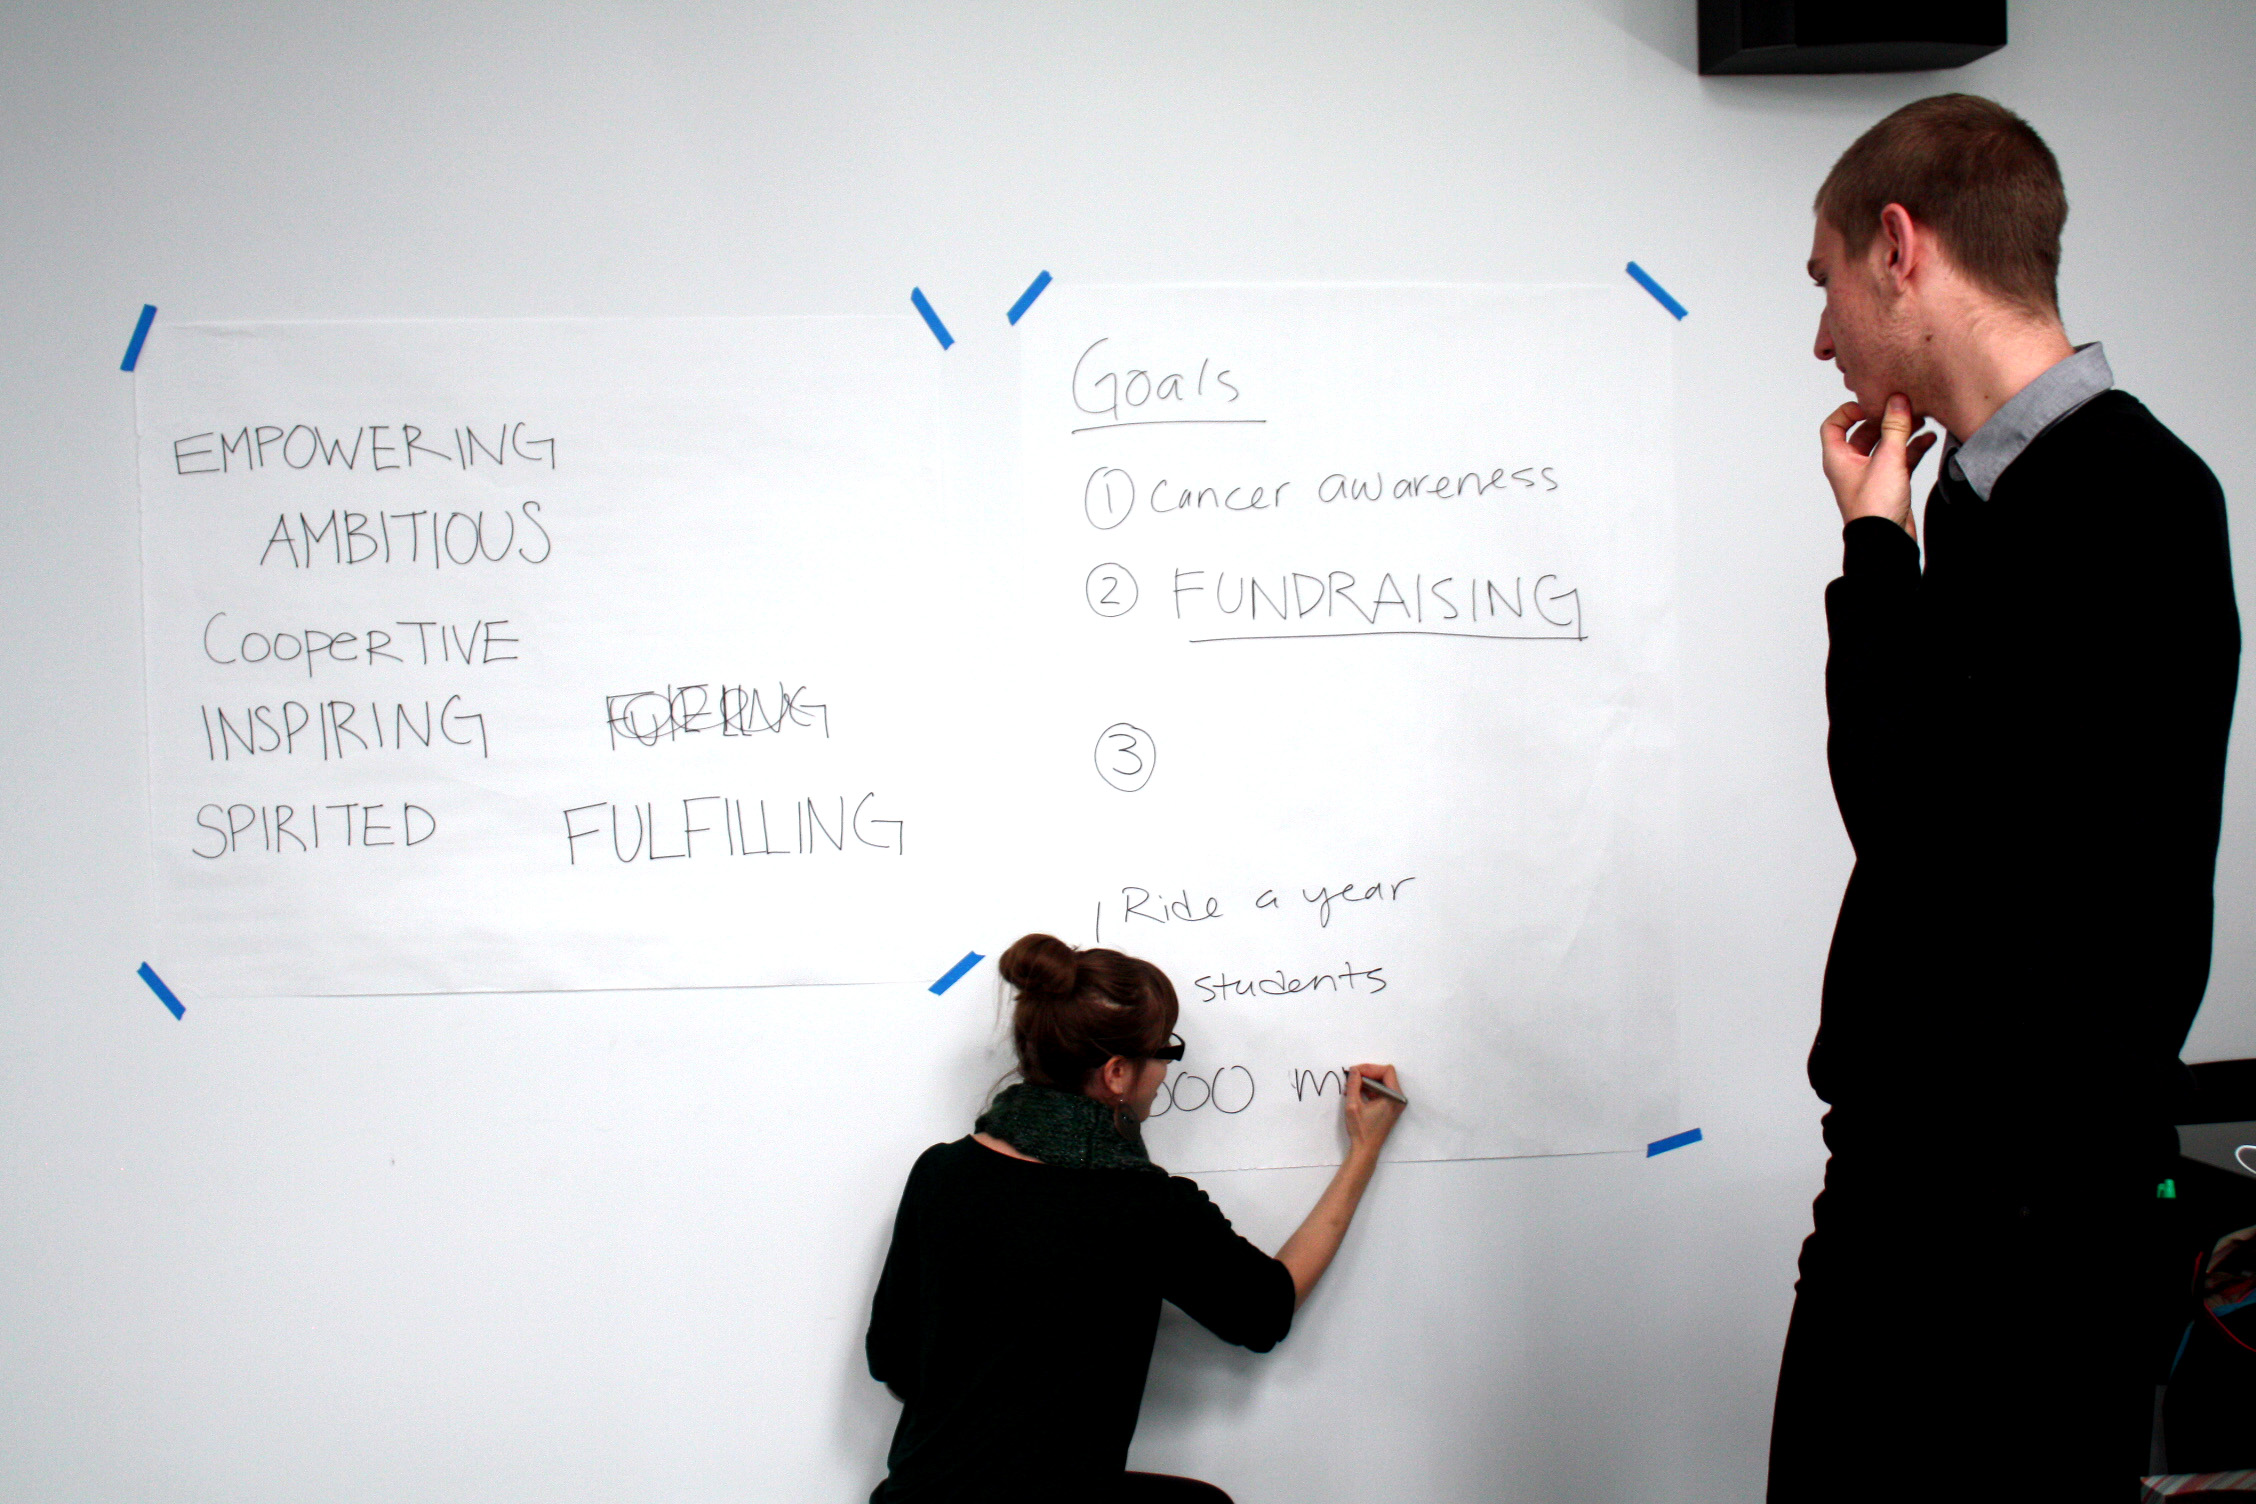 EMPOWERING
AMBITIOUS
COOPERTIVE
INSPIRING
SPIRITED FULFILLING
Goals
① Cancer awareness
② FUNDRAISING
③
1 Ride a year
students